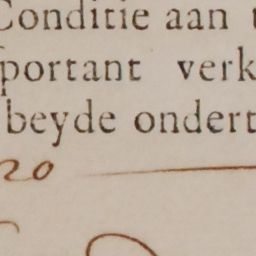 Conditie aan
portant verk
beyde ondert
20